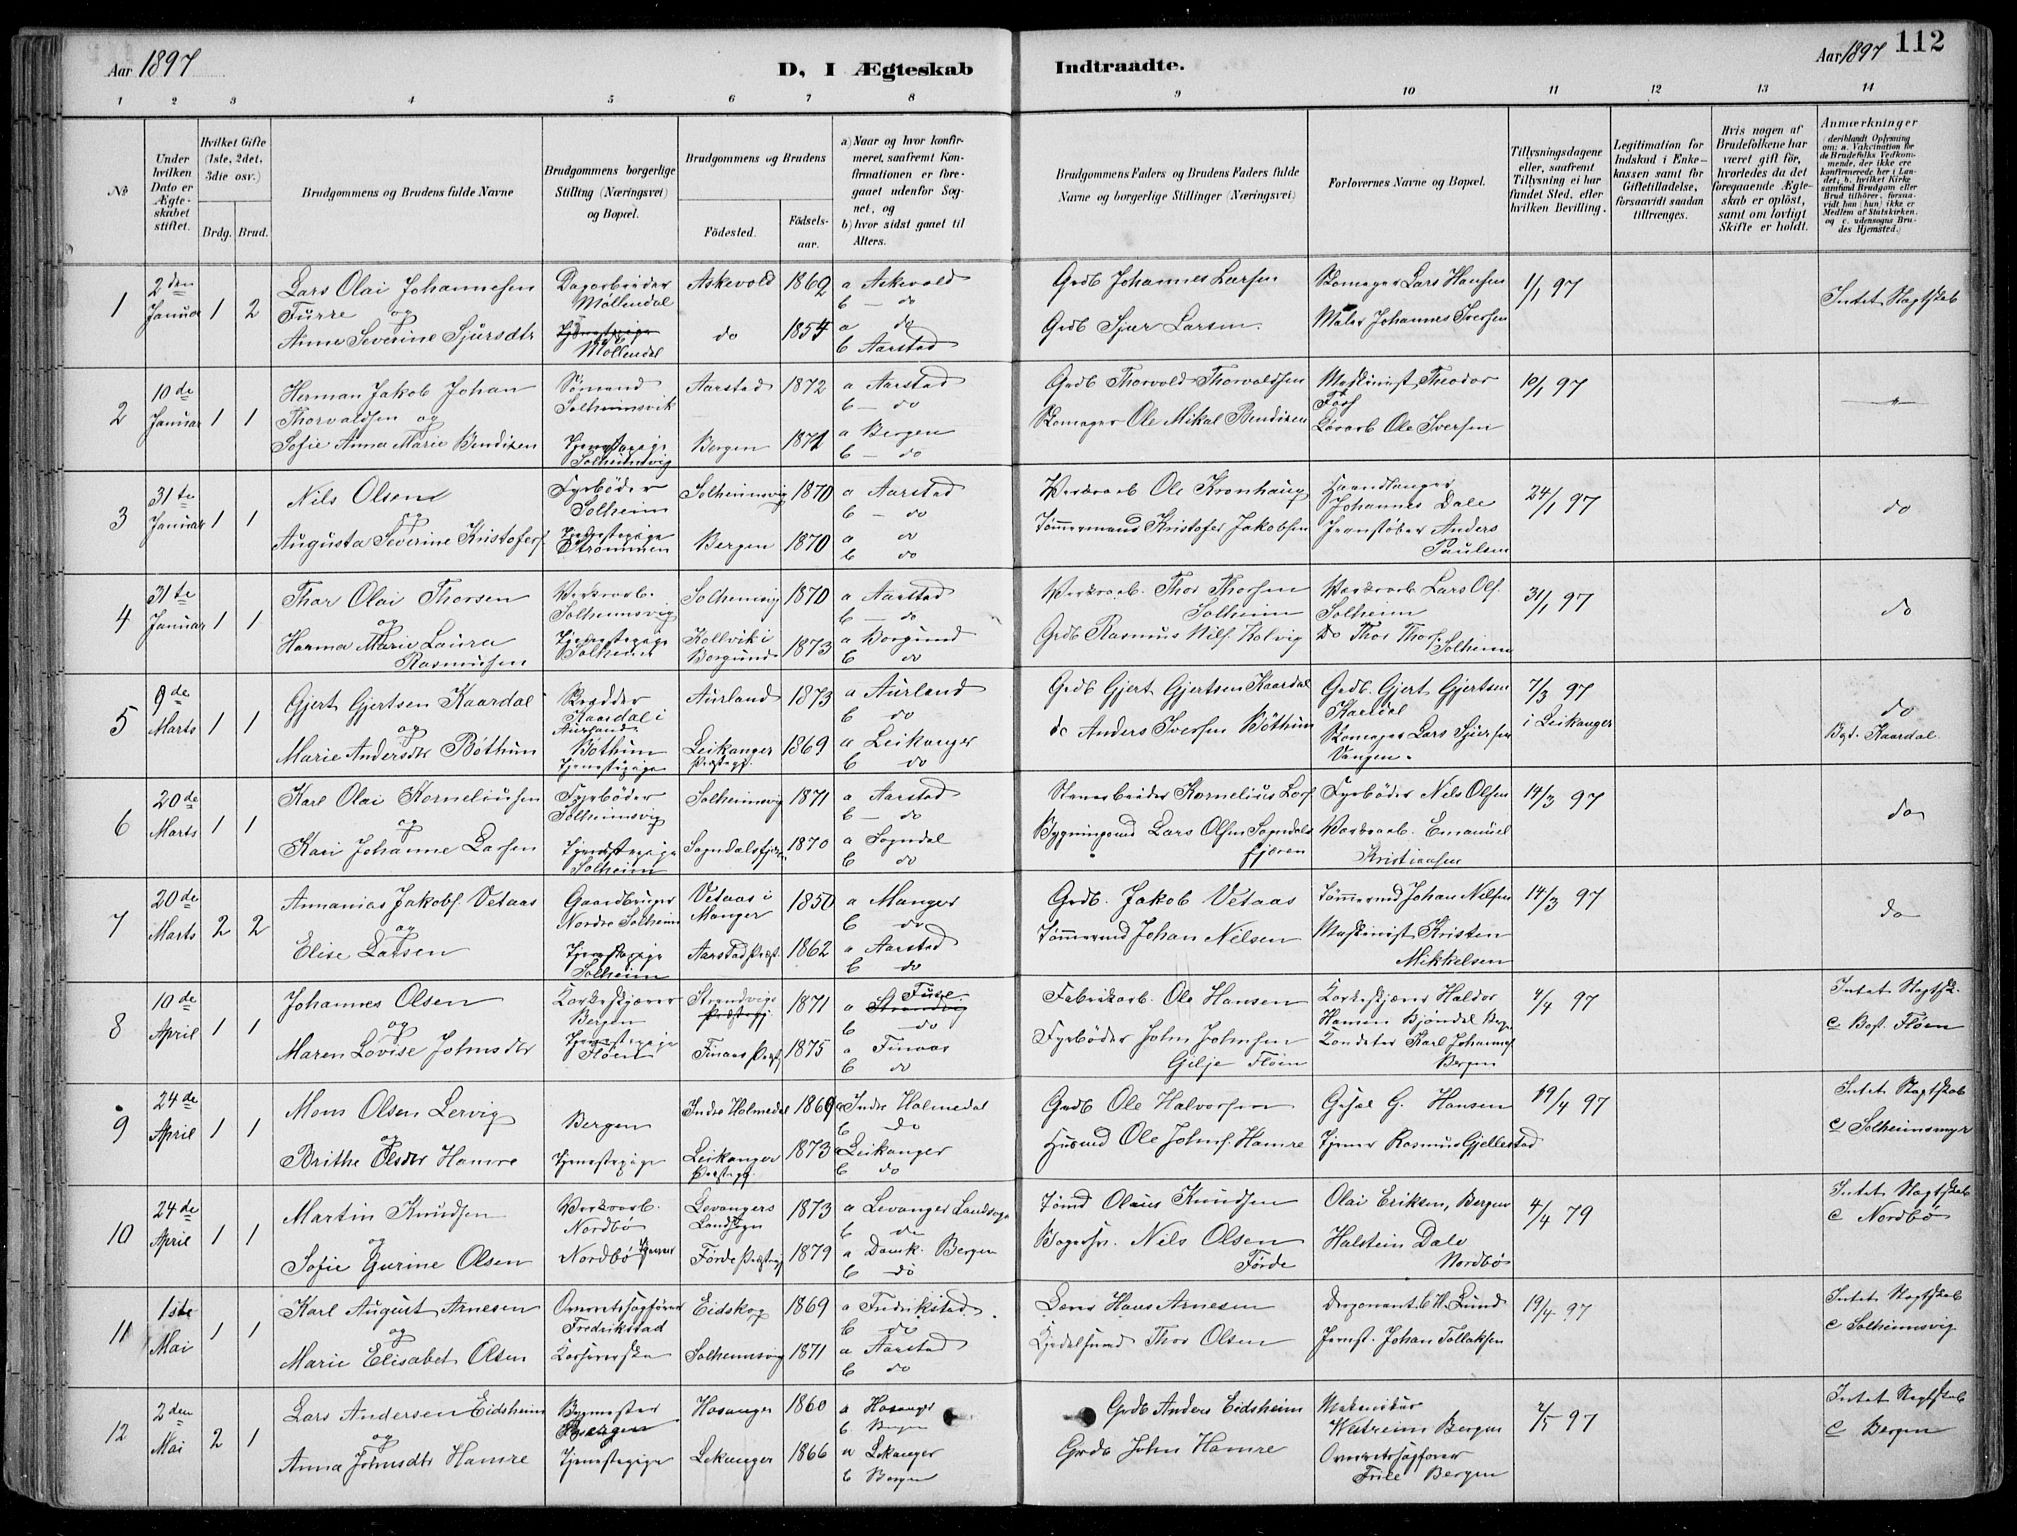 Aar 1897
D, I Ægteskab
Indtraadte.
Aar 1897
112
1 2 3 4 5 6 7 8 9 10 11 12 13 14
No
Under hvilken Dato er Ægteskabet stiftet.
Hvilket Gifte (1ste, 2det, 3die osv.)
Brdg. Brud.
Brudgommens og Brudens fulde Navne
Brudgommens borgerlige Stilling (Næringsvei) og Bopæl.
Brudgommens og Brudens
Fødested.
Fødselsaar.
a) Naar og hvor konfirmeret, saafremt Konfirmationen er foregaaet udenfor Sognet, og
b) hvor sidst gaaet til Alters.
Brudgommens Faders og Brudens Faders fulde Navne og borgerlige Stillinger (Næringsvei)
Forlovernes Navne og Bopæl.
Tillysningsdagene eller, saafremt Tillysning ei har fundet Sted, efter hvilken Bevilling.
Legitimation for Indskud i Enkekassen samt for Giftetilladelse, forsaavidt saadan tiltrænges.
Hvis nogen af Brudefolkene har været gift før, hvorledes da det foregaaende Ægteskab er opløst, samt om lovligt Skifte er holdt.
Anmærkninger
(deriblandt Oplysning om: a. Vakcination for de Brudefolks Vedkommende, der ikke ere konfirmerede her i Landet; b. hvilket Kirkesamfund Brudgom eller Brud tilhører, forsaavidt han (hun) ikke er Medlem af Statskirken, og c. udensogns Brudes Hjemsted.)
1 2den Januar 1 2 Lars Olai Johannesen Furre og Anne Severine Sjursdtr
Dagarbeider Møllendal Møllendal
Askevold 1862 a Askevold b do
do 1854 a do b Aarstad
Grdb Johannes Larsen
Grdb Sjur Larsen.
Skomager Lars Hansen
Maler Johannes Iversen
1/1 97
Intet Slagtskab
2 10de Januar 1 1 Herman Jakob Johan Thorvaldsen og Sofie Anna Marie Bendixen
Sømand Solheimsvik
Tjenestepige Solheimsvig
Aarstad 1872 a Aarstad b do
Bergen 1871 a Bergen b do
Grdb Thorvold Thorvaldsen
Skomager Ole Mikal Bendixen
Maskinist Theodor Foss
Løsarb Ole Iversen
10/1 97
3 31te Januar 1 1 Nils Olsen og Augusta Severine Kristofers.
Fyrbøder Solheim
Tjenestepige Strømmen
Solheimsvig 1870 a Aarstad b do
Bergen 1870 a do b do
Værksarb Ole Kronhaug
Tømmermand Kristofer Jakobsen
Haandlanger Johannes Dale
Jernstøber Anders Paulsen
24/1 97
do
4 31te Januar 1 1 Thor Olai Thorsen og Hanna Marie Laura Rasmussen
Værksarb. Solheimsvig
Tjenestepige Solheim
Solheimsvig 1870 a Aarstad b do
Kollvik i Borgund 1873 a Borgund b do
Værksarb. Thor Thorsen Solheim
Grdb Rasmus Nils. Kolvig
Værksarb Lars Ols. Solheim
Do Thor Thors. Solheim
31/1 97
do
5 9de Marts 1 1 Gjert Gjertsen Kaardal og Marie Andersdtr Bøthun
Skrædder Kaardal i Aurland
Bøthun Tjenestepige
Aurland 1873 a Aurland b do
Leikanger Præstegj. 1869 a Leikanger b do
Grdb Gjert Gjertsen Kaardal
do Anders Iversen Bøthun
Grdb. Gjert Gjertsen Kardal
Skomager Lars Sjursen Vangen.
7/3 97 i Leikanger
do
Bgd. Kaardal
6 20de Marts 1 1 Karl Olai Korneliussen og Kari Johanne Larsen
Fyrbøder Solheimsvig
Tjenestepige Solheim
Solheimsvig 1871 a Aarstad b do
Sogndalsfjæren 1870 a Sogndal b do
Stenarbeider Kornelius Lars.
Bygningsmd Lars Olsen Sogndalsfjæren
Fyrbøder Nils Olsen
Værksarb. Emanuel Kristiansen
14/3 97
do
7 20de Marts 2 2 Annanias Jakobs. Vetaas og Elise Larsen
Gaardbruger Nordre Solheim
Tjenestepige Solheim
Vetaas i Manger 1850 a Manger b do
Aarstad Præst. 1862 a Aarstad b do
Grdb. Jakob Vetaas
Tømmermd Johan Nilsen
Tømmermd Johan Nilsen
Maskinist Kristen Mikkelsen
14/3 97
do
8 10de April 1 1 Johannes Olsen og Maren Lovise Johnsdtr
Korkeskjærer Bergen
Tjenestepige Fløen
Strandvigs Præstegj 1871 a Strandvig Fuse b do
Finaas Præst. 1875 a Finaas b do
Fabrikarb. Ole Hansen
Fyrbøder John Johnsen Gilje Fløen
Korkeskjærer Haldor Hansen Bjøndal Berg.
Konditor Karl Johannes. Bergen
4/4 97
Intet Slagtsk.
c Bost. Fløen
9 24de April 1 1 Mons Olsen Lervig og Brithe Olsdtr Hamre
Bergen
Tjenestepige
Indre Holmedal 1869 a Indre Holmedal b do
Leikanger Præstegj. 1873 a Leikanger b do
Grdb Ole Halvorsen
Husmd Ole Johns. Hamre
Gysæl G. Hansen
Tjener Rasmus Gjellestad
19/4 97
Intet Slagtskab
c Solheimsmyr
10 24de April 1 1 Martin Knudsen og Sofie Gurine Olsen
Værksarb. Nordbø
Nordbø Tjener
Levangers Landsogn 1873 a Levanger Landsogn b do
Førde Præstegj 1879 a Domk. Bergen b do
Tømd Olaus Knudsen
Bagersv. Nils Olsen Førde
Olai Eriksen, Bergen
Halstein Dale Nordbø
4/4 79
Intet Slagtskab
c Nordbø
11 1ste Mai 1 1 Karl August Arnesen og Marie Elisabet Olsen
Overretssagfører Fredrikstad
Kasererske
Eidskog 1869 a Fredrikstad b do
Solheimsvig 1871 a Aarstad b do
Lærer Hans Arnesen
Kjedelsmd Thor Olsen
Disponent C H. Lund
Jernst. Johan Tollaksen
19/4 97
Intet Slagtskab
c Solheimsvig
12 2den Mai 2 1 Lars Andersen Eidsheim og Anna Johnsdtr Hamre
Bygmester Bergen
Tjenestepige
Hosanger 1860 a Hosanger b Bergen
Lekanger 1866 a Lekanger b Bergen
Grdb Anders Eidsheim
Grdb John Hamre
Mekaniker Westreim Bergen
Overretssagfører Friee Bergen
2/5 97
Intet Slagtskab
c Bergen